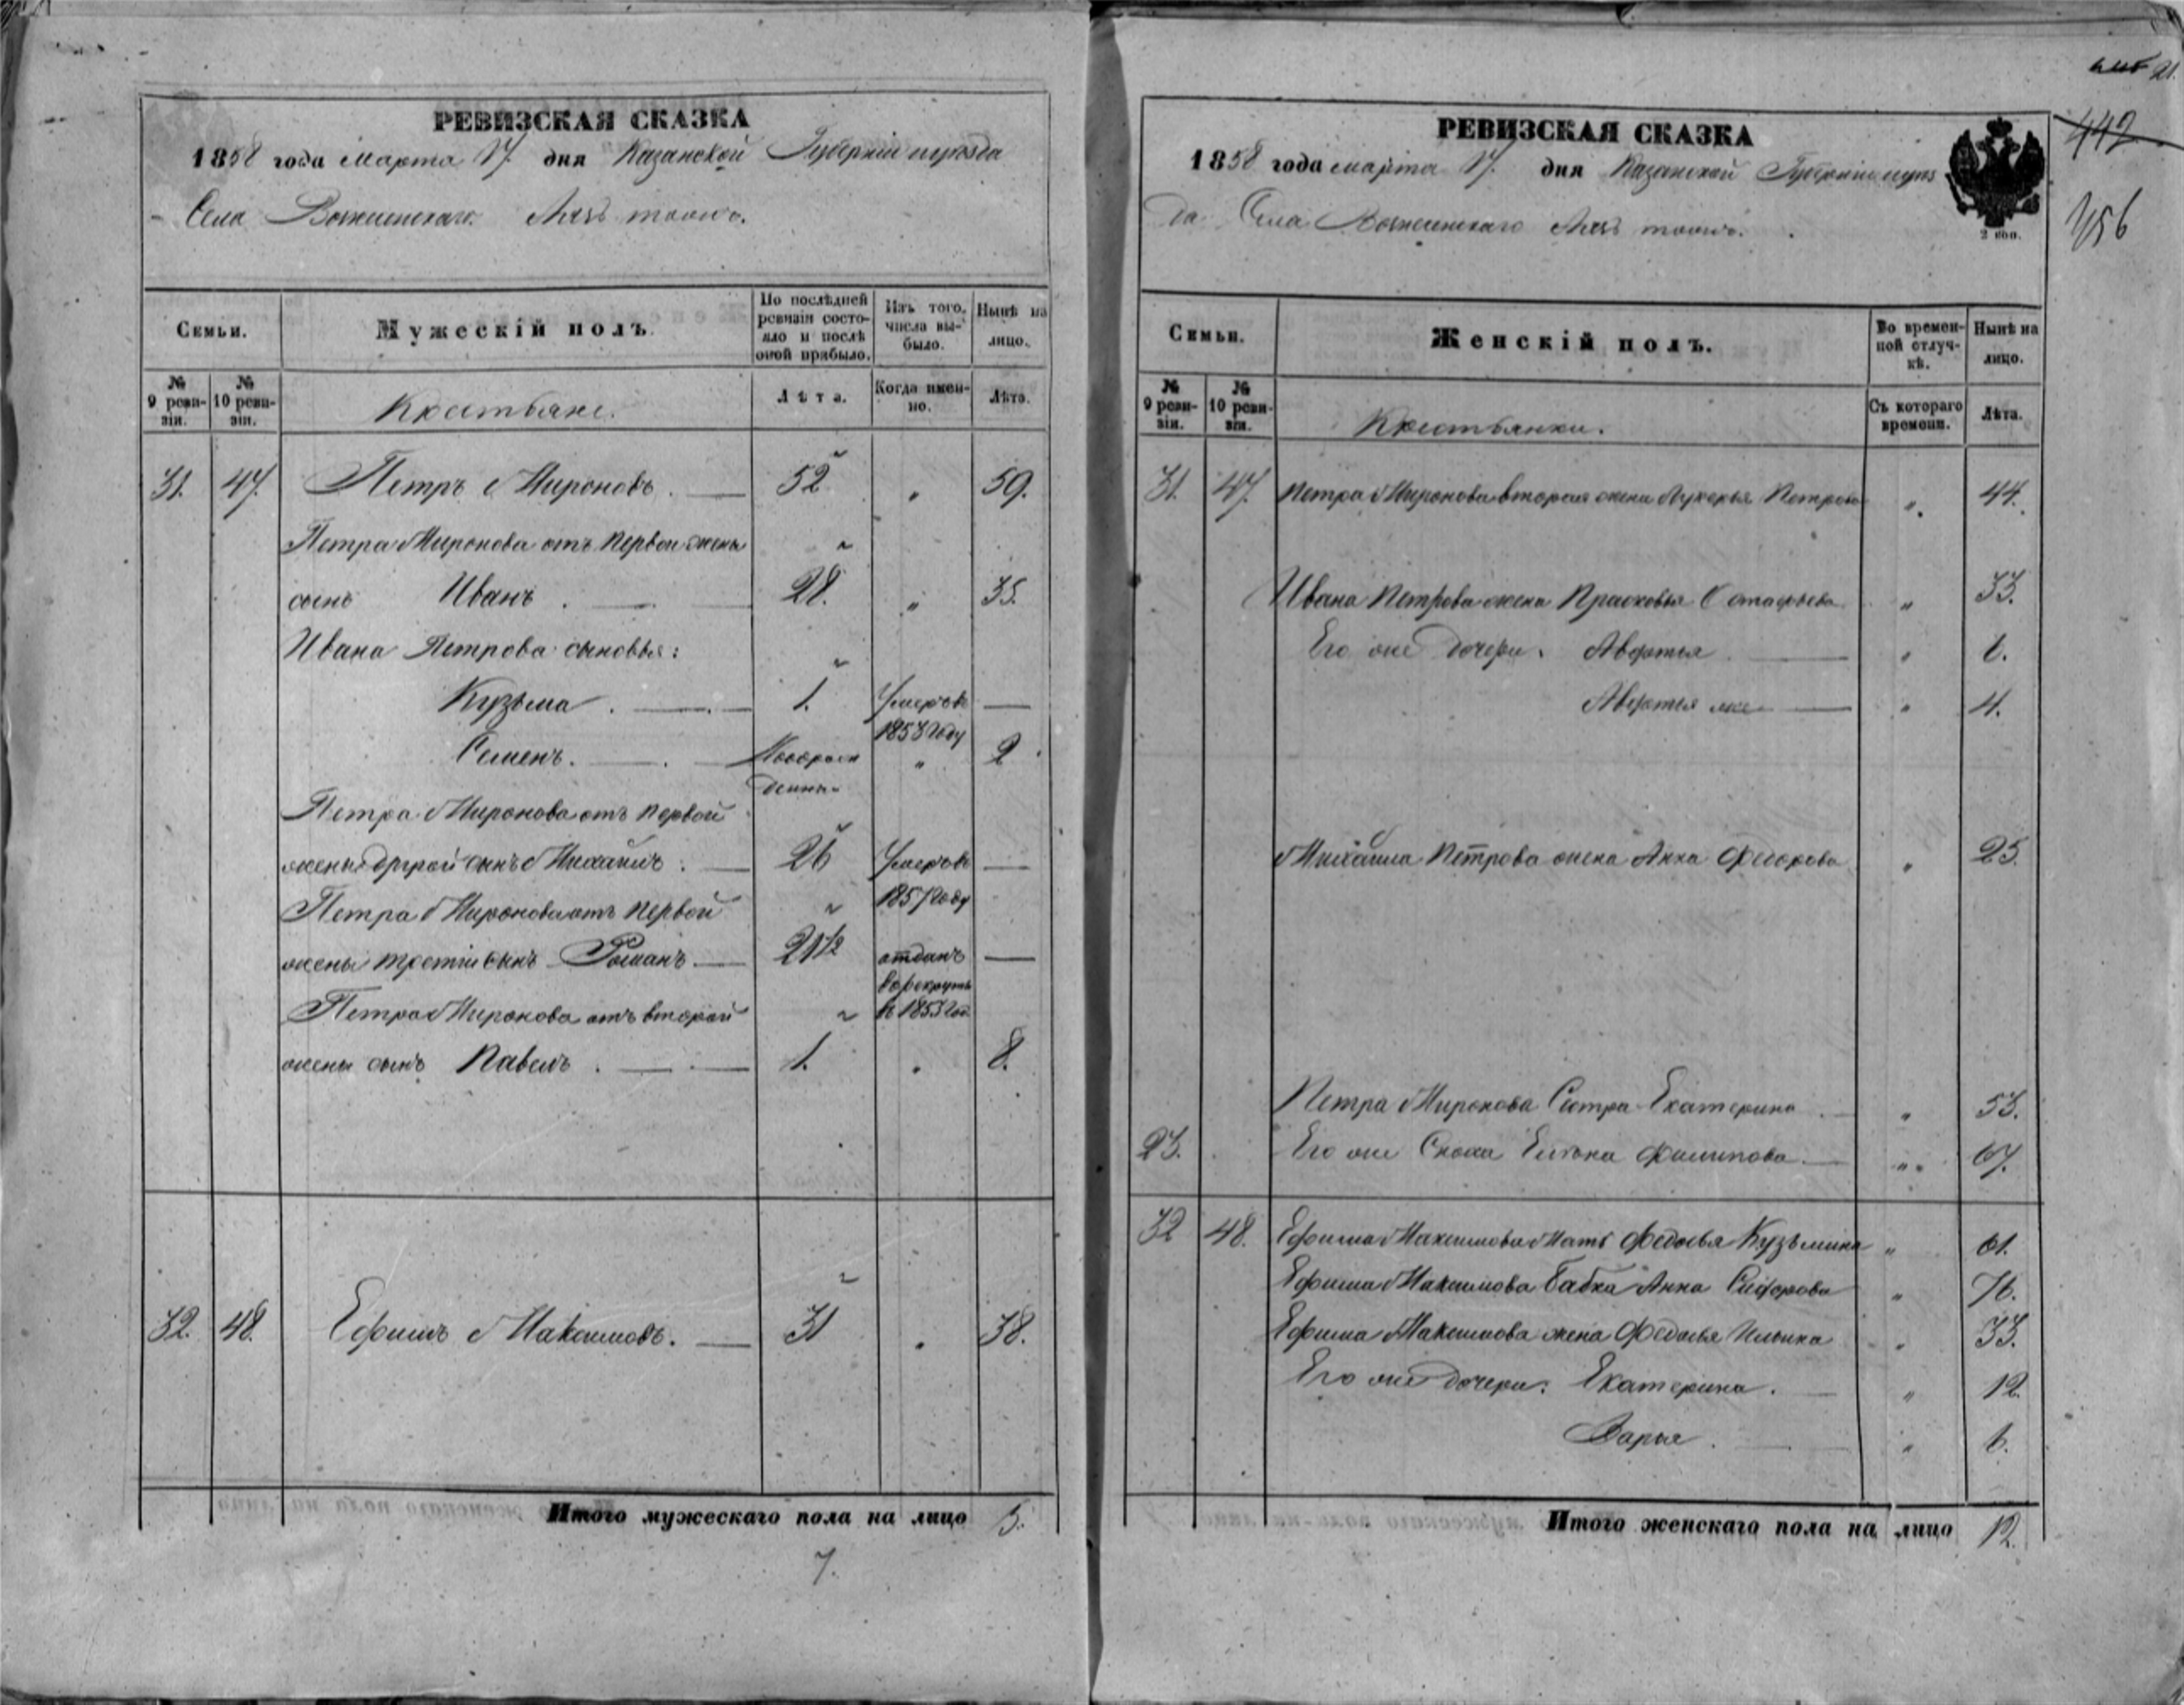 РЕВИЗСКАЯ СКАЗКА
1858 года марта 17. дня Казанской Губернии и уѣзда
Села Вознесенскаго
Семьи.
Мужескій полъ.
По послѣдней ревизіи состояло и послѣ оной прибыло.
Изъ того числа выбыло.
Нынѣ на лицо.
№ 9 ревизіи.
№ 10 ревизіи.
Крестьяне.
Лѣта.
Когда именно.
Лѣта.
31. 47. Петръ Мироновъ. 52 " 59.
Петра Миронова отъ первой жены
сынъ Иванъ. 28. " 35.
Ивана Петрова сыновья:
Кузьма. 1. Умеръ въ —
1858 году
Семенъ. Новорож " 2
денны
Петра Миронова отъ первой
жены другой сынъ Михайлъ. 26 Умеръ въ —
Петра Миронова отъ первой 1857 году
жены третій сынъ Романъ 21 1/2 отданъ —
в рекруты
Петра Миронова отъ второй в 1855 год
жены сынъ Павелъ. 1. " 8.
32. 48. Ефимъ Максимовъ. 31 " 38.
Итого мужескаго пола на лицо 5.
7.
21.
442
456
РЕВИЗСКАЯ СКАЗКА
1858 года марта 17. дня Казанской Губерніи и уѣз
да Села Вознесенскаго
2 коп.
Семьи.
Женскій полъ.
Во временной отлучкѣ.
Нынѣ на лицо.
№ 9 ревизіи.
№ 10 ревизіи.
Крестьянки.
Съ котораго времени.
Лѣта.
31. 47. Петра Миронова вторая жена Лукерья Петрова " 44.
Ивана Петрова жена Прасковья Остафьева " 33.
Его же дочери: Авдотья " 6.
Авдотья же " 4.
Михаила Петрова жена Анна Федорова " 25.
Петра Миронова Сестра Екатерина " 53.
23. Его же Сноха Елена Филипова " 67.
32 48. Ефима Максимова Мать Федосья Кузьмина " 61.
Ефима Максимова Бабка Анна Сидорова " 76.
Ефима Максимова жена Федосья Ильина " 33.
Его же дочери: Екатерина. " 12.
Дарья. " 6.
Итого женскаго пола на лицо 12.